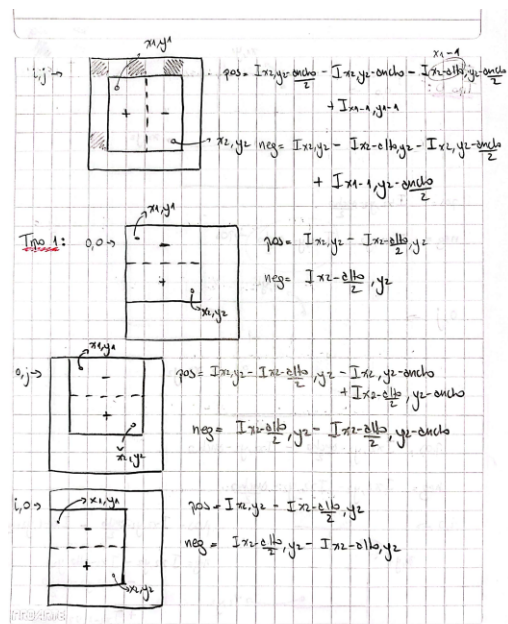 x1,y1
i,j → pos = Ix2,y2-ancho/2 - Ix2,y2-ancho - Ix2-alto,y2-ancho/2
x1-1
+ Ix1-1,y1-1
+ -
x2,y2 neg = Ix2,y2 - Ix2-alto,y2 - Ix2,y2-ancho/2
+ Ix1-1,y2-ancho/2
x1,y1
Tipo 1: 0,0 → - pos = Ix2,y2 - Ix2-alto/2,y2
+ neg = Ix2-alto/2,y2
x2,y2
x1,y1
0,j → - pos = Ix2,y2 - Ix2-alto/2,y2 - Ix2,y2-ancho
+ Ix2-alto/2,y2-ancho
+ neg = Ix2-alto/2,y2 - Ix2-alto/2,y2-ancho
x2,y2
i,0 → x1,y1 pos = Ix2,y2 - Ix2-alto/2,y2
- neg = Ix2-alto/2,y2 - Ix2-alto,y2
+
x2,y2